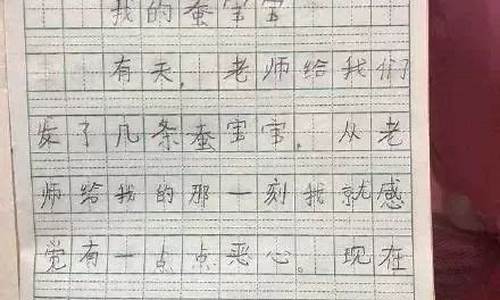 我的蚕宝宝
有天，老师给我们
发了几条蚕宝宝，从老
师给我的那一刻我就感
觉有一点点恶心。现在